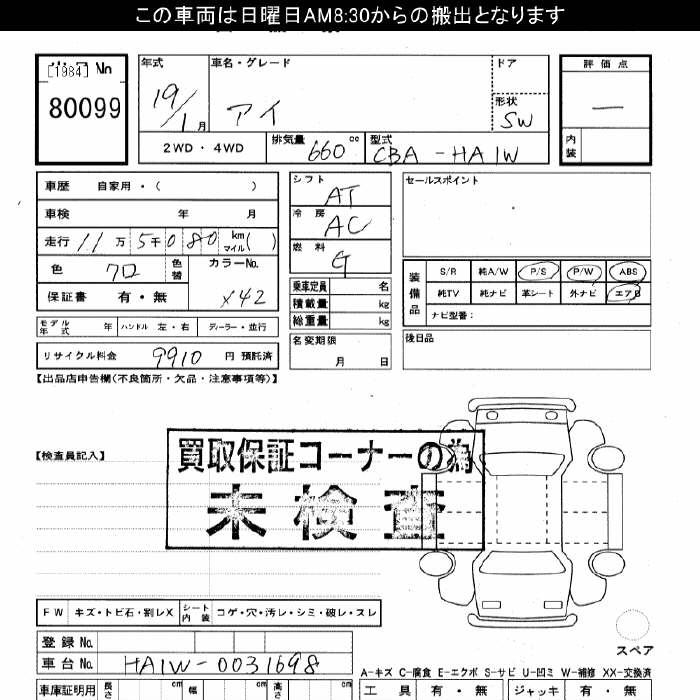 この車両は日曜日AM8:30からの搬出となります
[1984] No
80099
年式 車名・グレード ドア 評価点
19/1 月 アイ 形状 SW ―
2WD・4WD 排気量 660 cc 型式 CBA-HA1W 内装
車歴 自家用・( ) シフト AT セールスポイント
車検 年 月 冷房 AC
走行 11万5千080 km マイル( ) 燃料 G
色 クロ 色替 カラーNo. X42
保証書 有・無
乗車定員 名
積載量 kg
総重量 kg
装備品 S/R 純A/W P/S P/W ABS
純TV 純ナビ 革シート 外ナビ エアB
ナビ型番:
モデル年式 年 ハンドル 左・右 ディーラー・並行
名変期限 月 日
後日品
リサイクル料金 9910 円 預託済
【出品店申告欄(不良箇所・欠品・注意事項等)】
【検査員記入】
買取保証コーナーの為
未検査
FW キズ・トビ石・割レX シート内装 コゲ・穴・汚レ・シミ・破レ・スレ
登録No.
車台No. HA1W-0031698
スペア
A-キズ C-腐食 E-エクボ S-サビ U-凹ミ W-補修 XX-交換済
車庫証明用 長さ cm 幅 cm 高さ cm 工具 有・無 ジャッキ 有・無